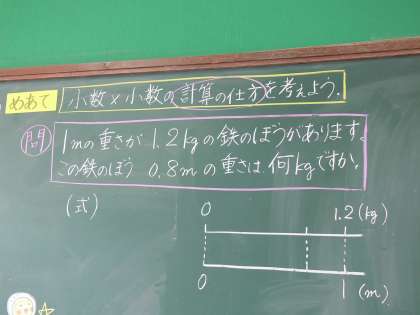 めあて 小数×小数の計算の仕方を考えよう。
問 1mの重さが1.2kgの鉄のぼうがあります。
この鉄のぼう 0.8mの重さは、何kgですか。
(式)
0 1.2(kg)
0 1 (m)